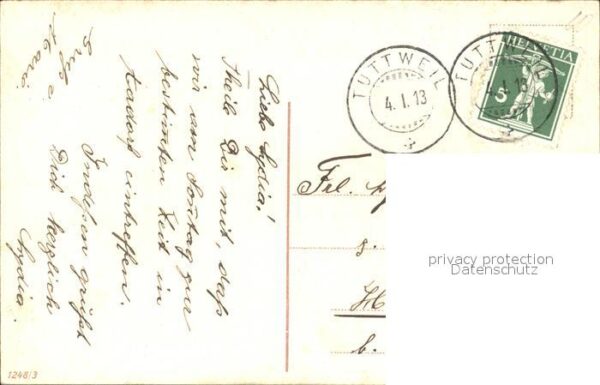 Liebe Lydia!
Theile Dir mit, daß
wir am Sonntag zur
bestimten Zeit in
Aadorf eintreffen.
Indessen grüßt
Dich herzlich
Lydia.
TUTTWEIL
4.I.13
TUTTWEIL
4.I.13
HELVETIA
5
Frl.
z.
H
b.
privacy protection
Datenschutz
1248/3